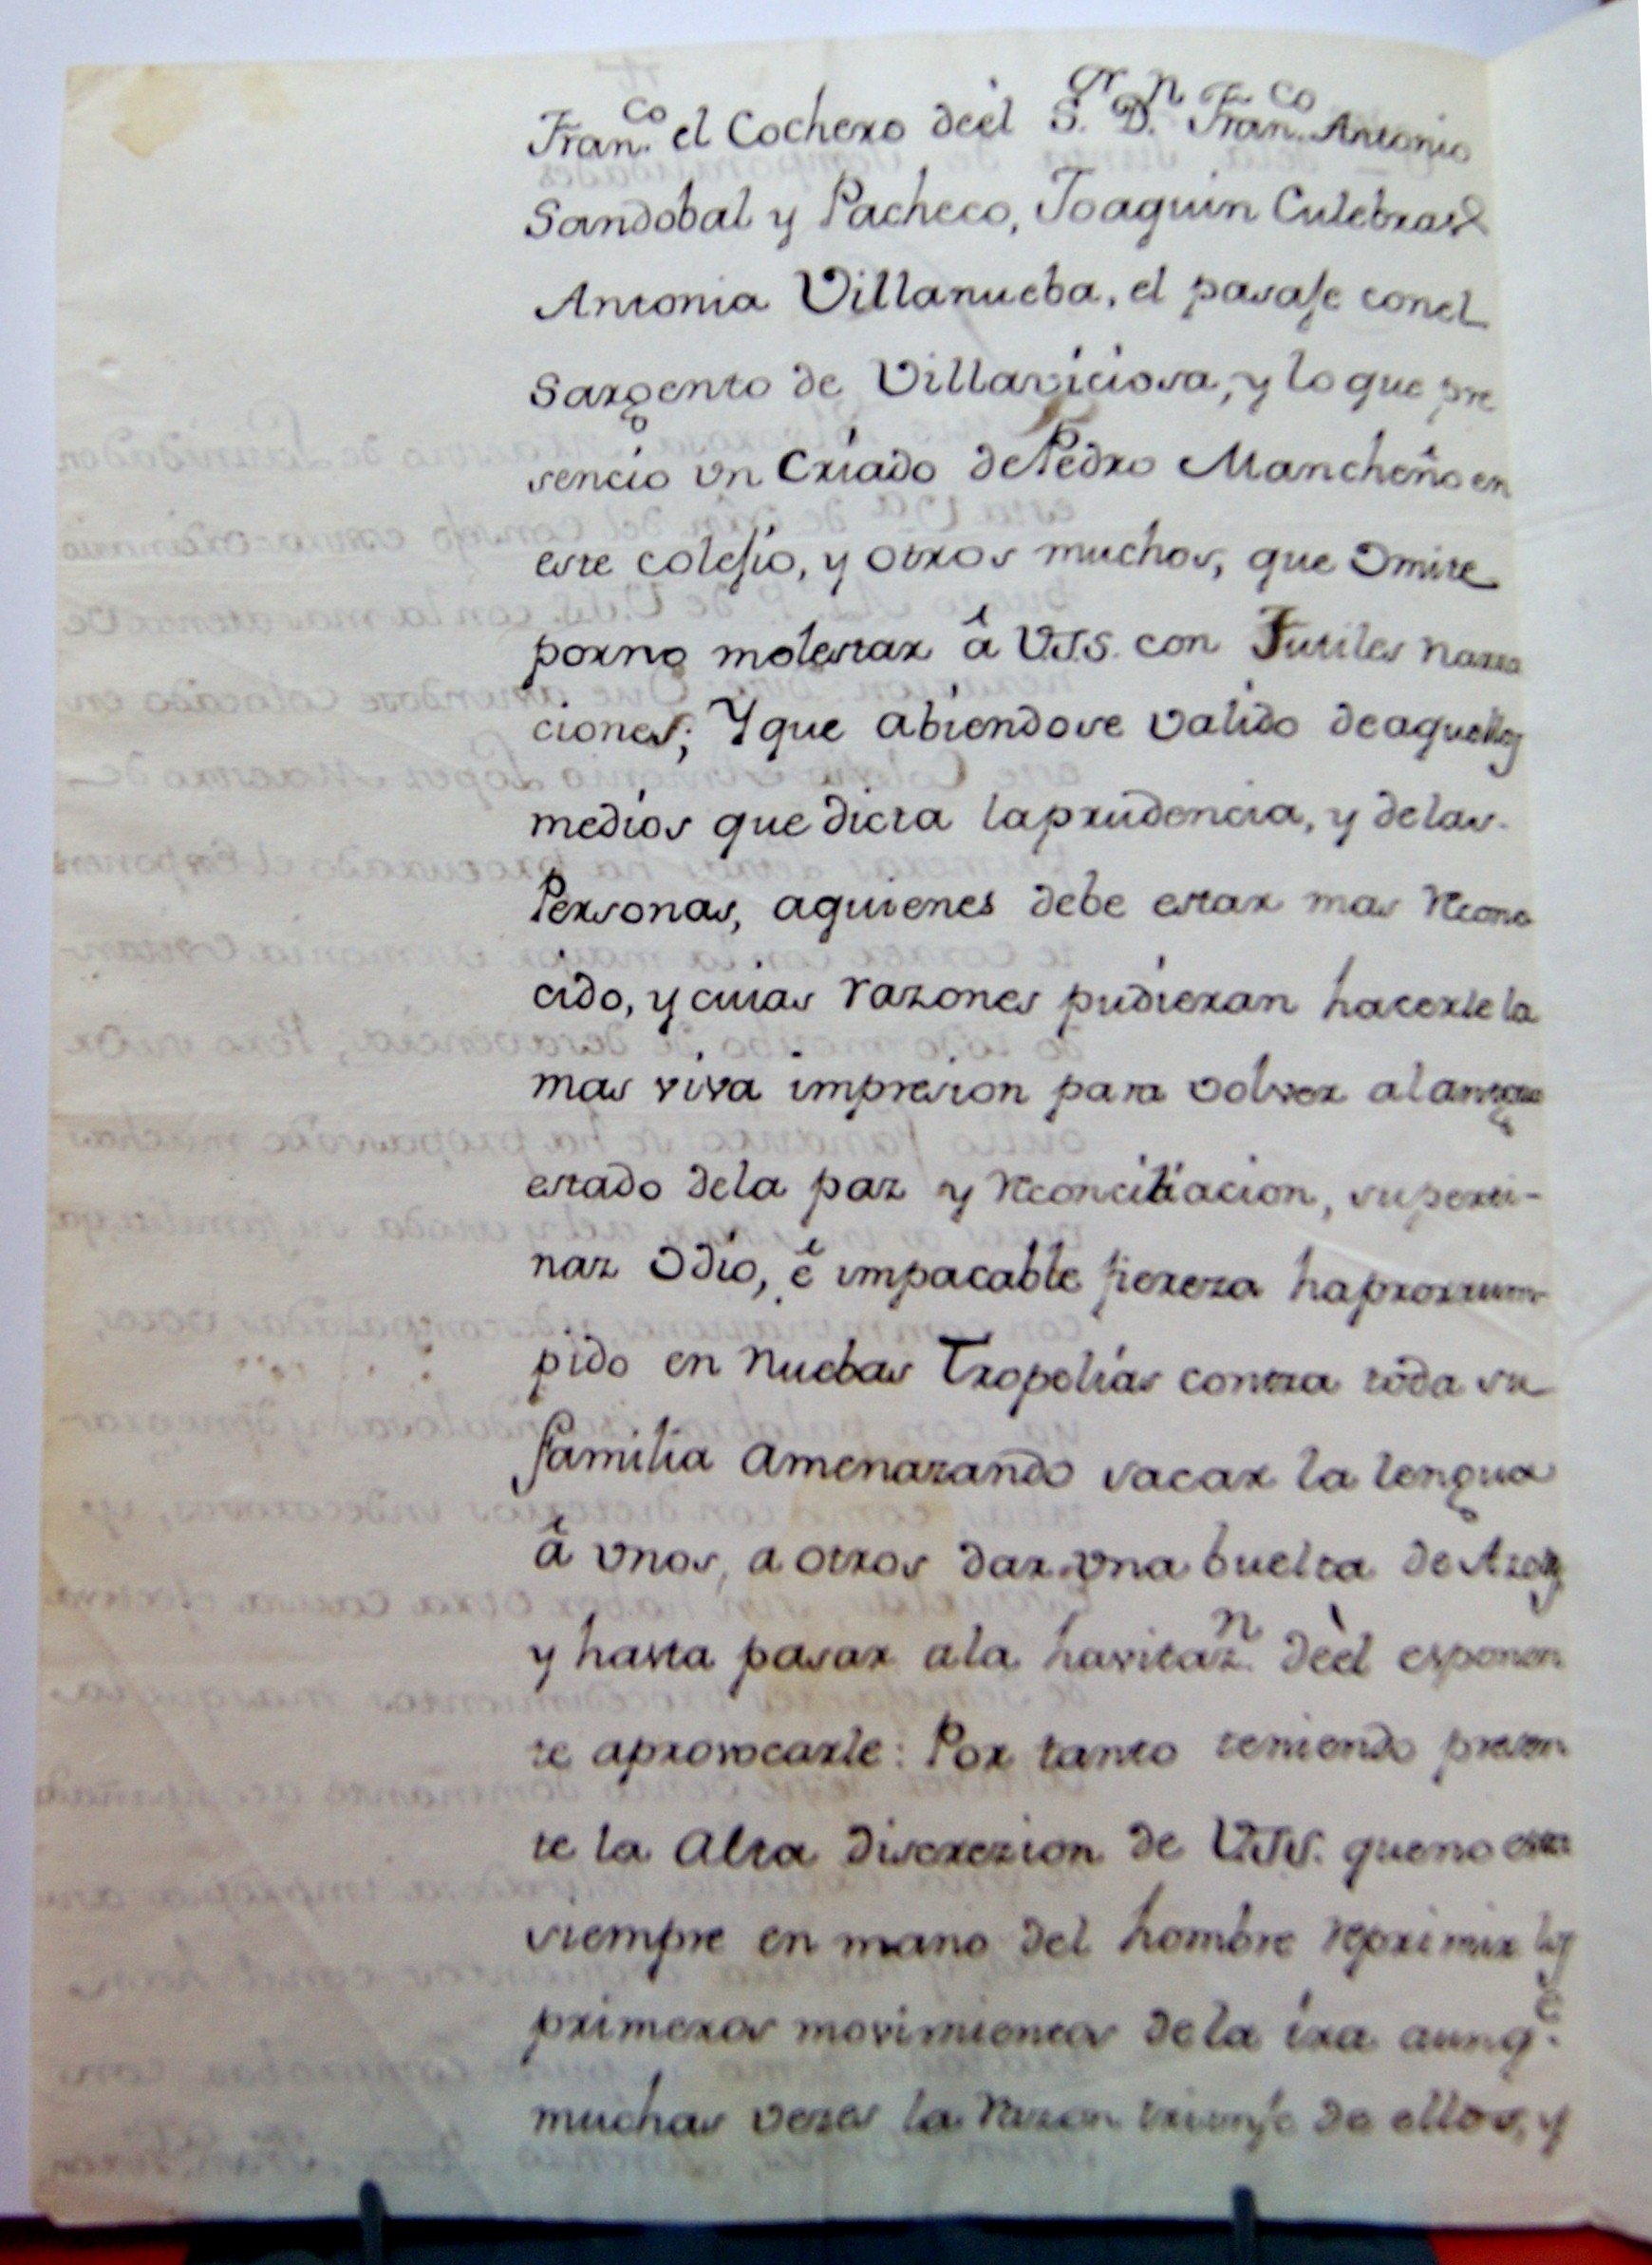 Fran.co el Cochero deèl S.or D.n Fran.co Antonio
Sandobal y Pacheco, Joaquin Culebras
Antonia Villanueba, el pasaje conel
Sargento de Villaviciosa, y lo que pre
sencio vn Criado dePedro Mancheño en
este colejio, y otros muchos, que Omite
porno molestar â V.S.S. con Futiles narra
ciones; Y que abiendose valido deaquellos
medios que dicta laprudencia, y delas
Personas, aquienes debe estar mas recono
cido, y cuias razones pudieran hacerle la
mas viva impresion para volver al antiguo
estado dela paz y reconciliacion, superti-
naz Odio, ê impacable fiereza haprorrum
pido en nuebas Tropelías contra toda su
familia amenazando sacar la lengua
â vnos, a otros dar vna buelta de Azotes
y hasta pasar ala havitaz.n deèl exponen
te aprovocarle: Por tanto teniendo presen
te la Alta discrezion de V.S.S. queno esta
siempre en mano del hombre reprimir los
primeros movimientos dela ira aunq.e
muchas vezes la razon triunfe de ellos, y